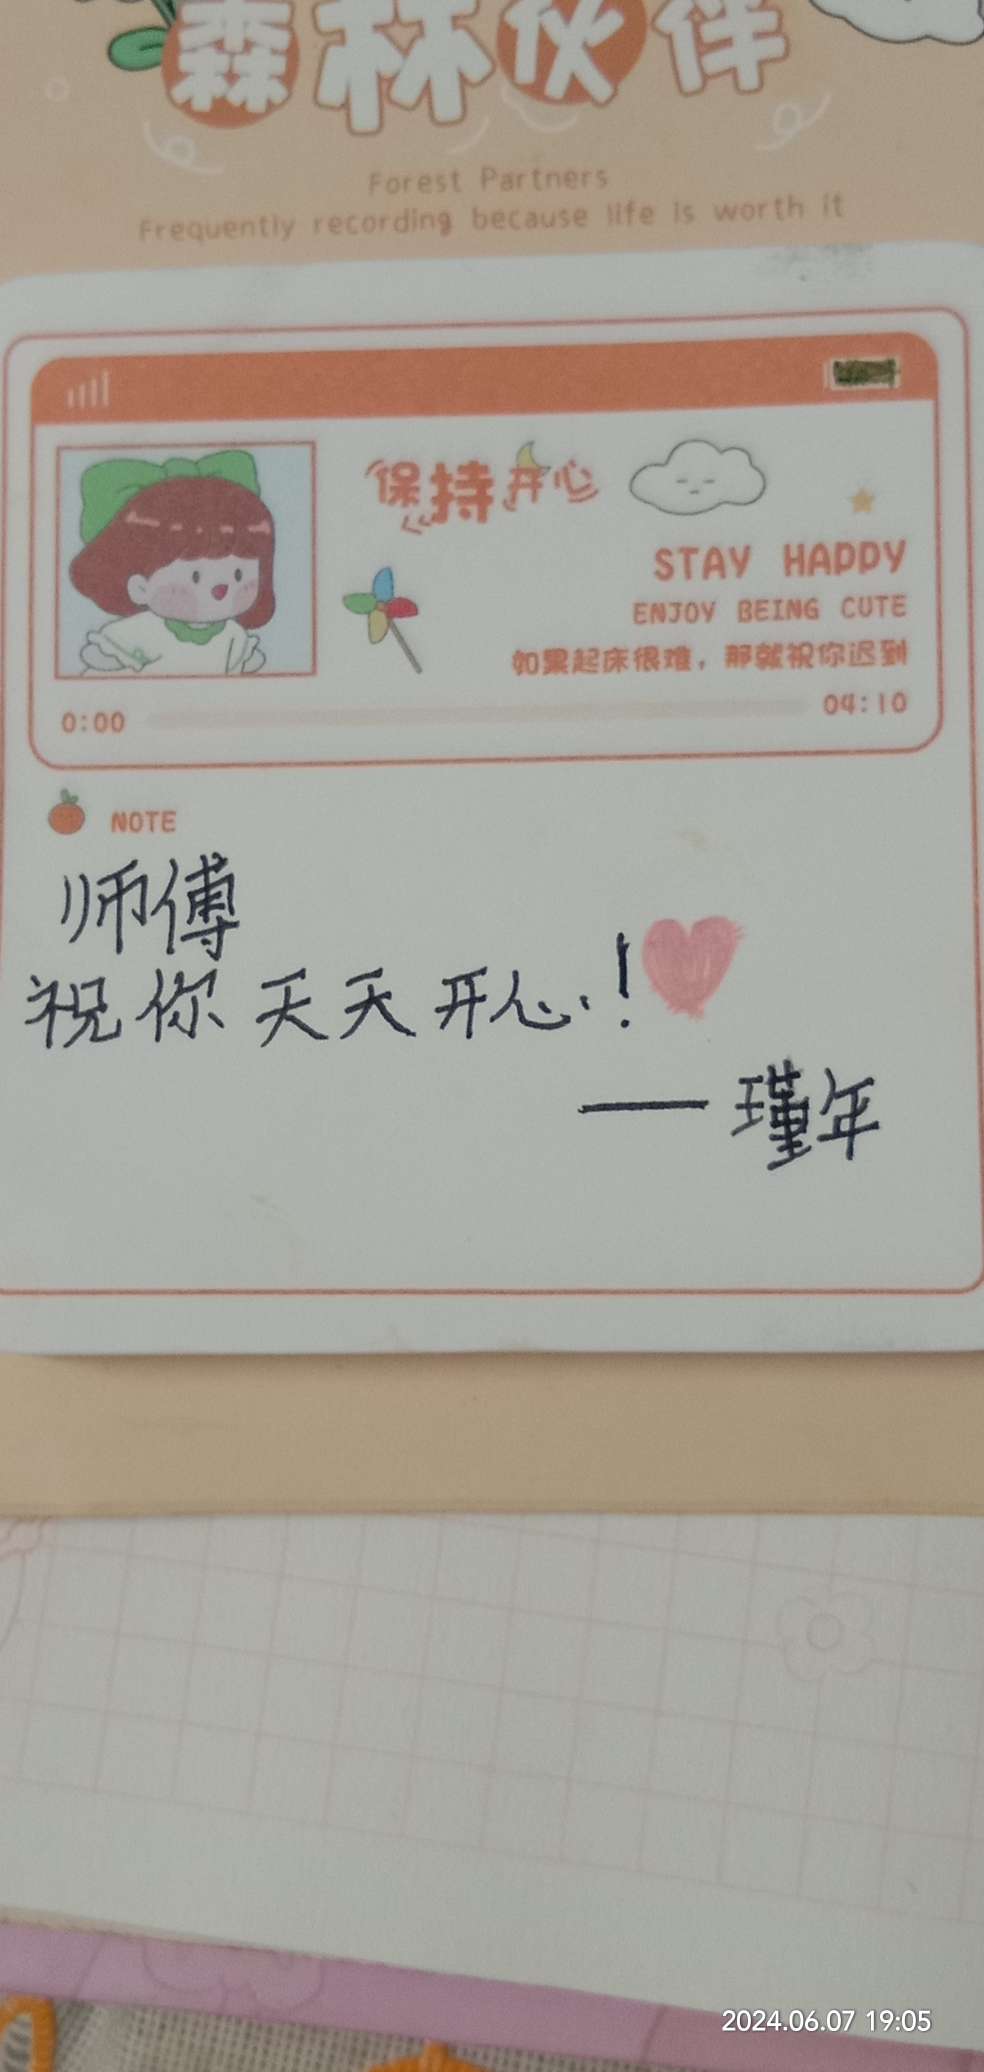 森林伙伴
Forest Partners
Frequently recording because life is worth it
保持开心
STAY HAPPY
ENJOY BEING CUTE
如果起床很难，那就祝你迟到
0:00
04:10
NOTE
师傅
祝你天天开心.!
——瑾年
2024.06.07 19:05